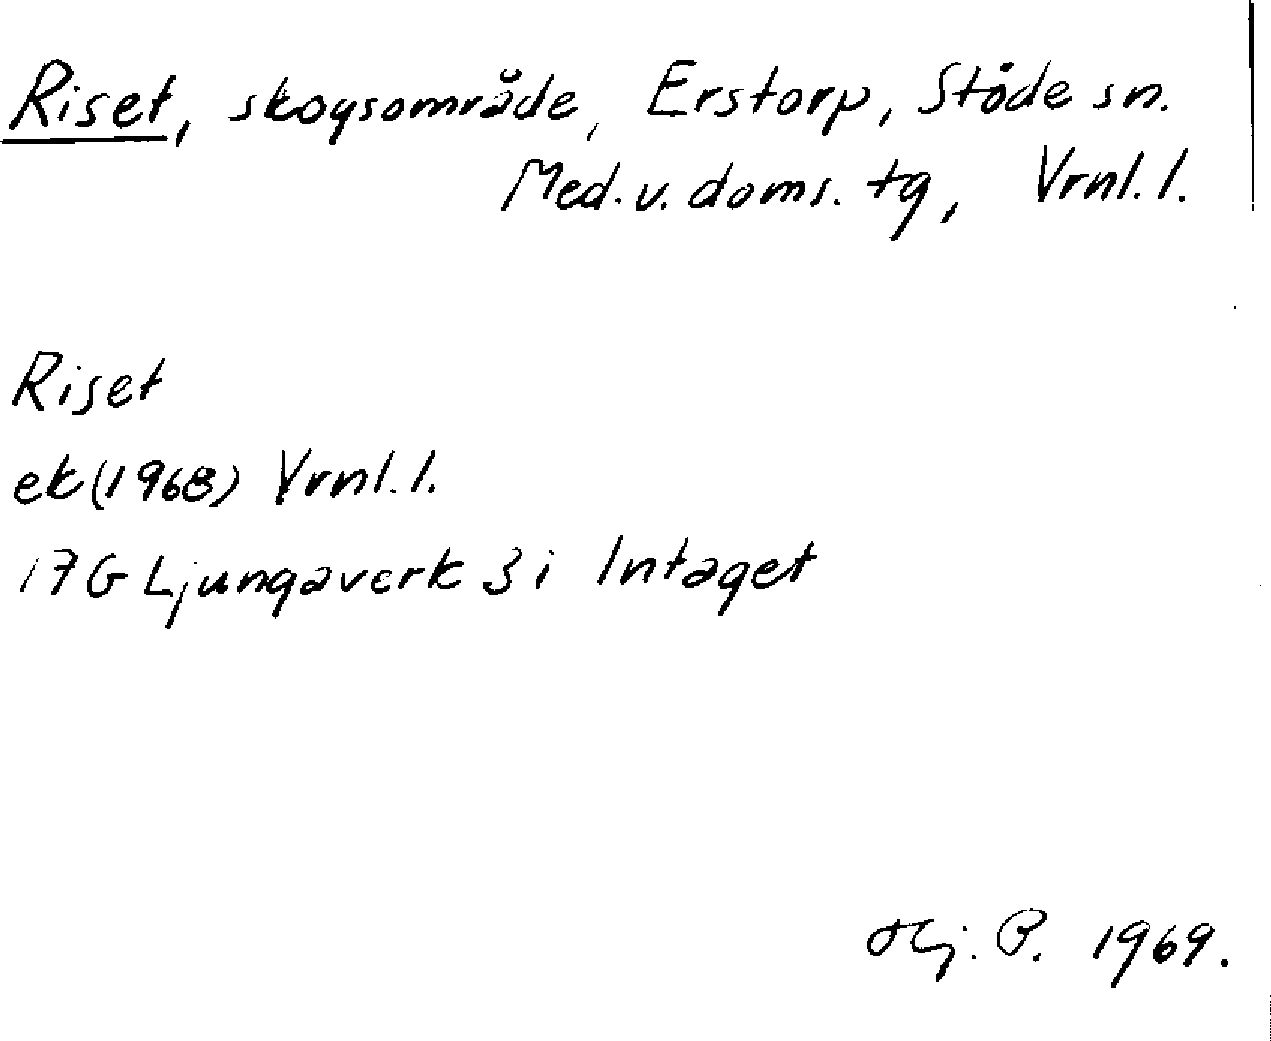 Riset, skogsområde, Erstorp, Stöde sn.
Med. v. doms. tg, Vrnl. l.
Riset
ek (1968) Vrnl. l.
17G Ljungaverk 3 i Intaget
Hj. P. 1969.